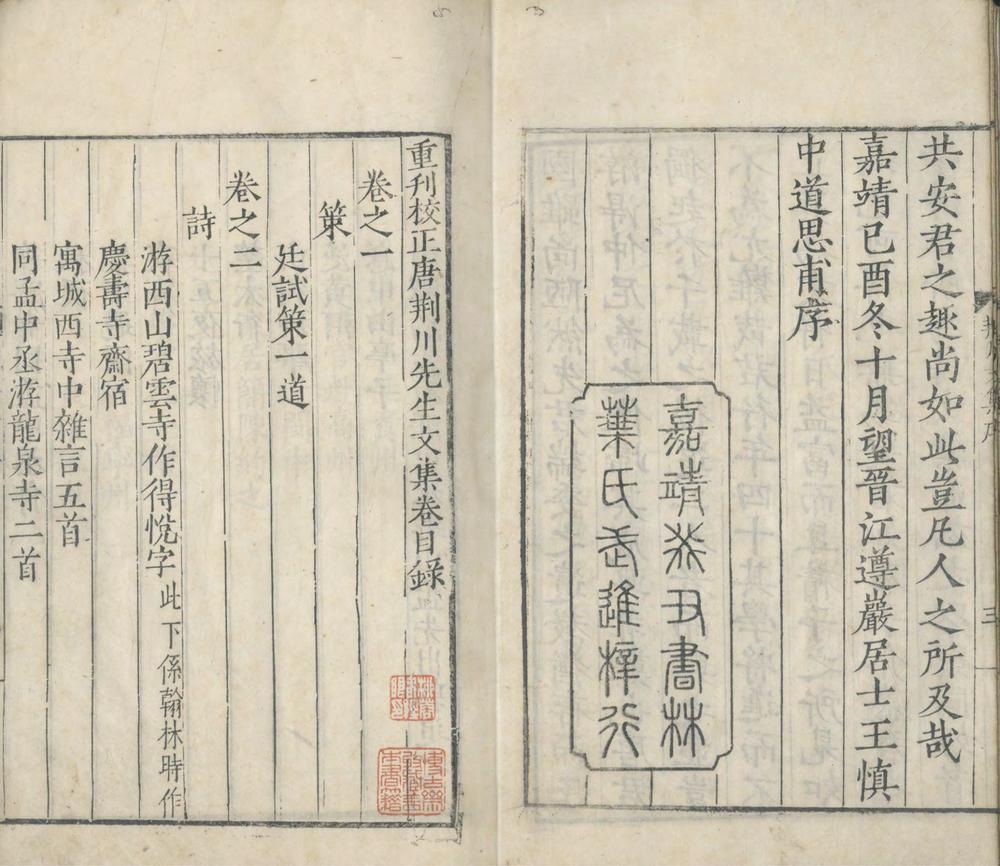 共安君之趣尚如此豈凡人之所及哉
嘉靖己酉冬十月望晉江遵巖居士王慎
中道思甫序
嘉靖癸丑書林
葉氏武進梓行
重刊校正唐荊川先生文集卷目錄
卷之一
策
廷試策一道
卷之二
詩
游西山碧雲寺作得悅字此下係翰林時作
慶壽寺齋宿
寓城西寺中雜言五首
同孟中丞游龍泉寺二首